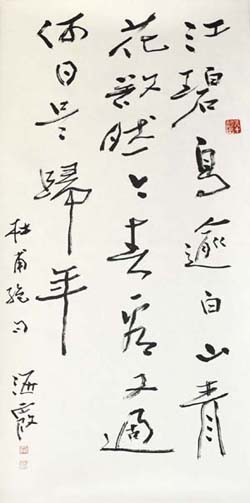 江碧鳥逾白山青
花欲然今春看又過
何日是歸年
杜甫絕句 海霞